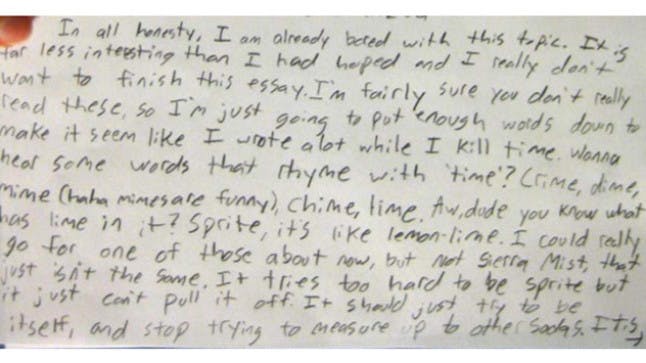 In all honesty, I am already bored with this topic. It is
far less intersting than I had hoped and I really don't
want to finish this essay. I'm fairly sure you don't really
read these, so I'm just going to put enough words down to
make it seem like I wrote alot while I kill time. Wanna
hear some words that rhyme with 'time'? Crime, dime,
mime (haha mimes are funny), Chime, lime. Aw, dude you know what
has lime in it? Sprite, it's like lemon-lime. I could really
go for one of those about now, but not Sierra Mist, that
just isn't the same. It tries too hard to be sprite but
it just can't pull it off. It should just try to be
itself, and stop trying to measure up to other sodas. It is